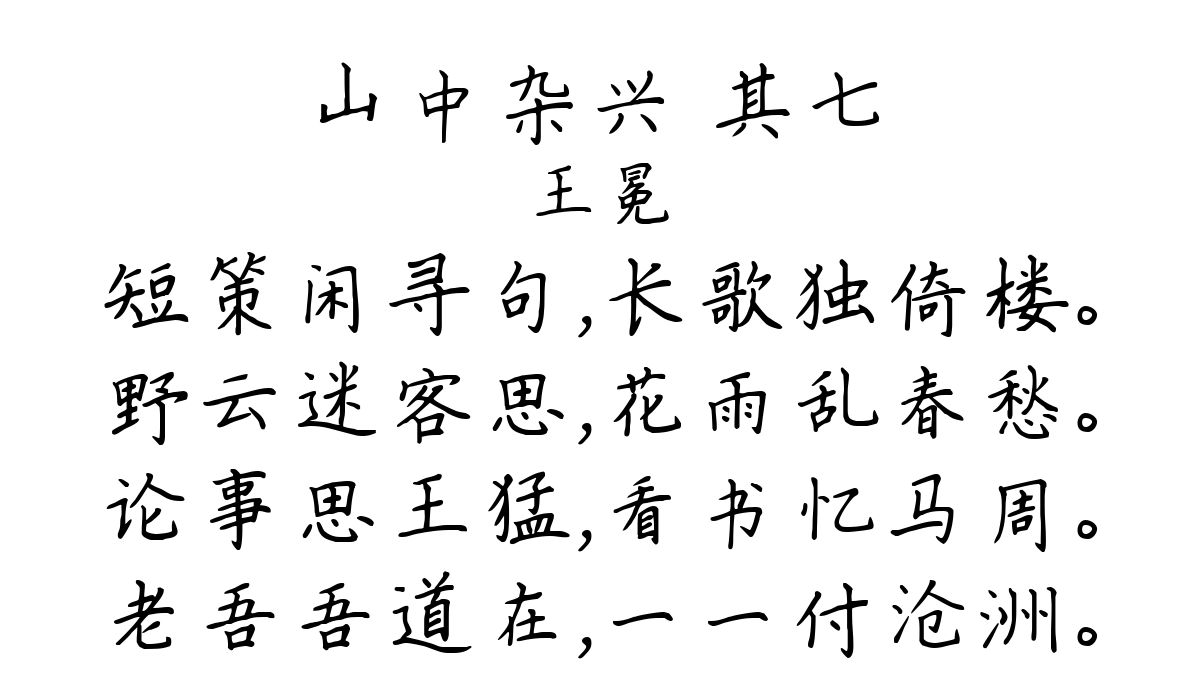 山中杂兴 其七
王冕
短策闲寻句,长歌独倚楼。
野云迷客思,花雨乱春愁。
论事思王猛,看书忆马周。
老吾吾道在,一一付沧洲。